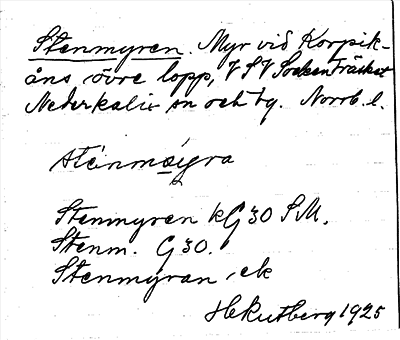 Stenmyren. Myr vid Korpik-
åns övre lopp, VSV Socken Träsket
Nederkalix sn och tg. Norrb. l.
stéinmo̱i̱gra
Stenmyren kG 30 S.M.
Stenm. G 30.
Stenmyran, ek
1925